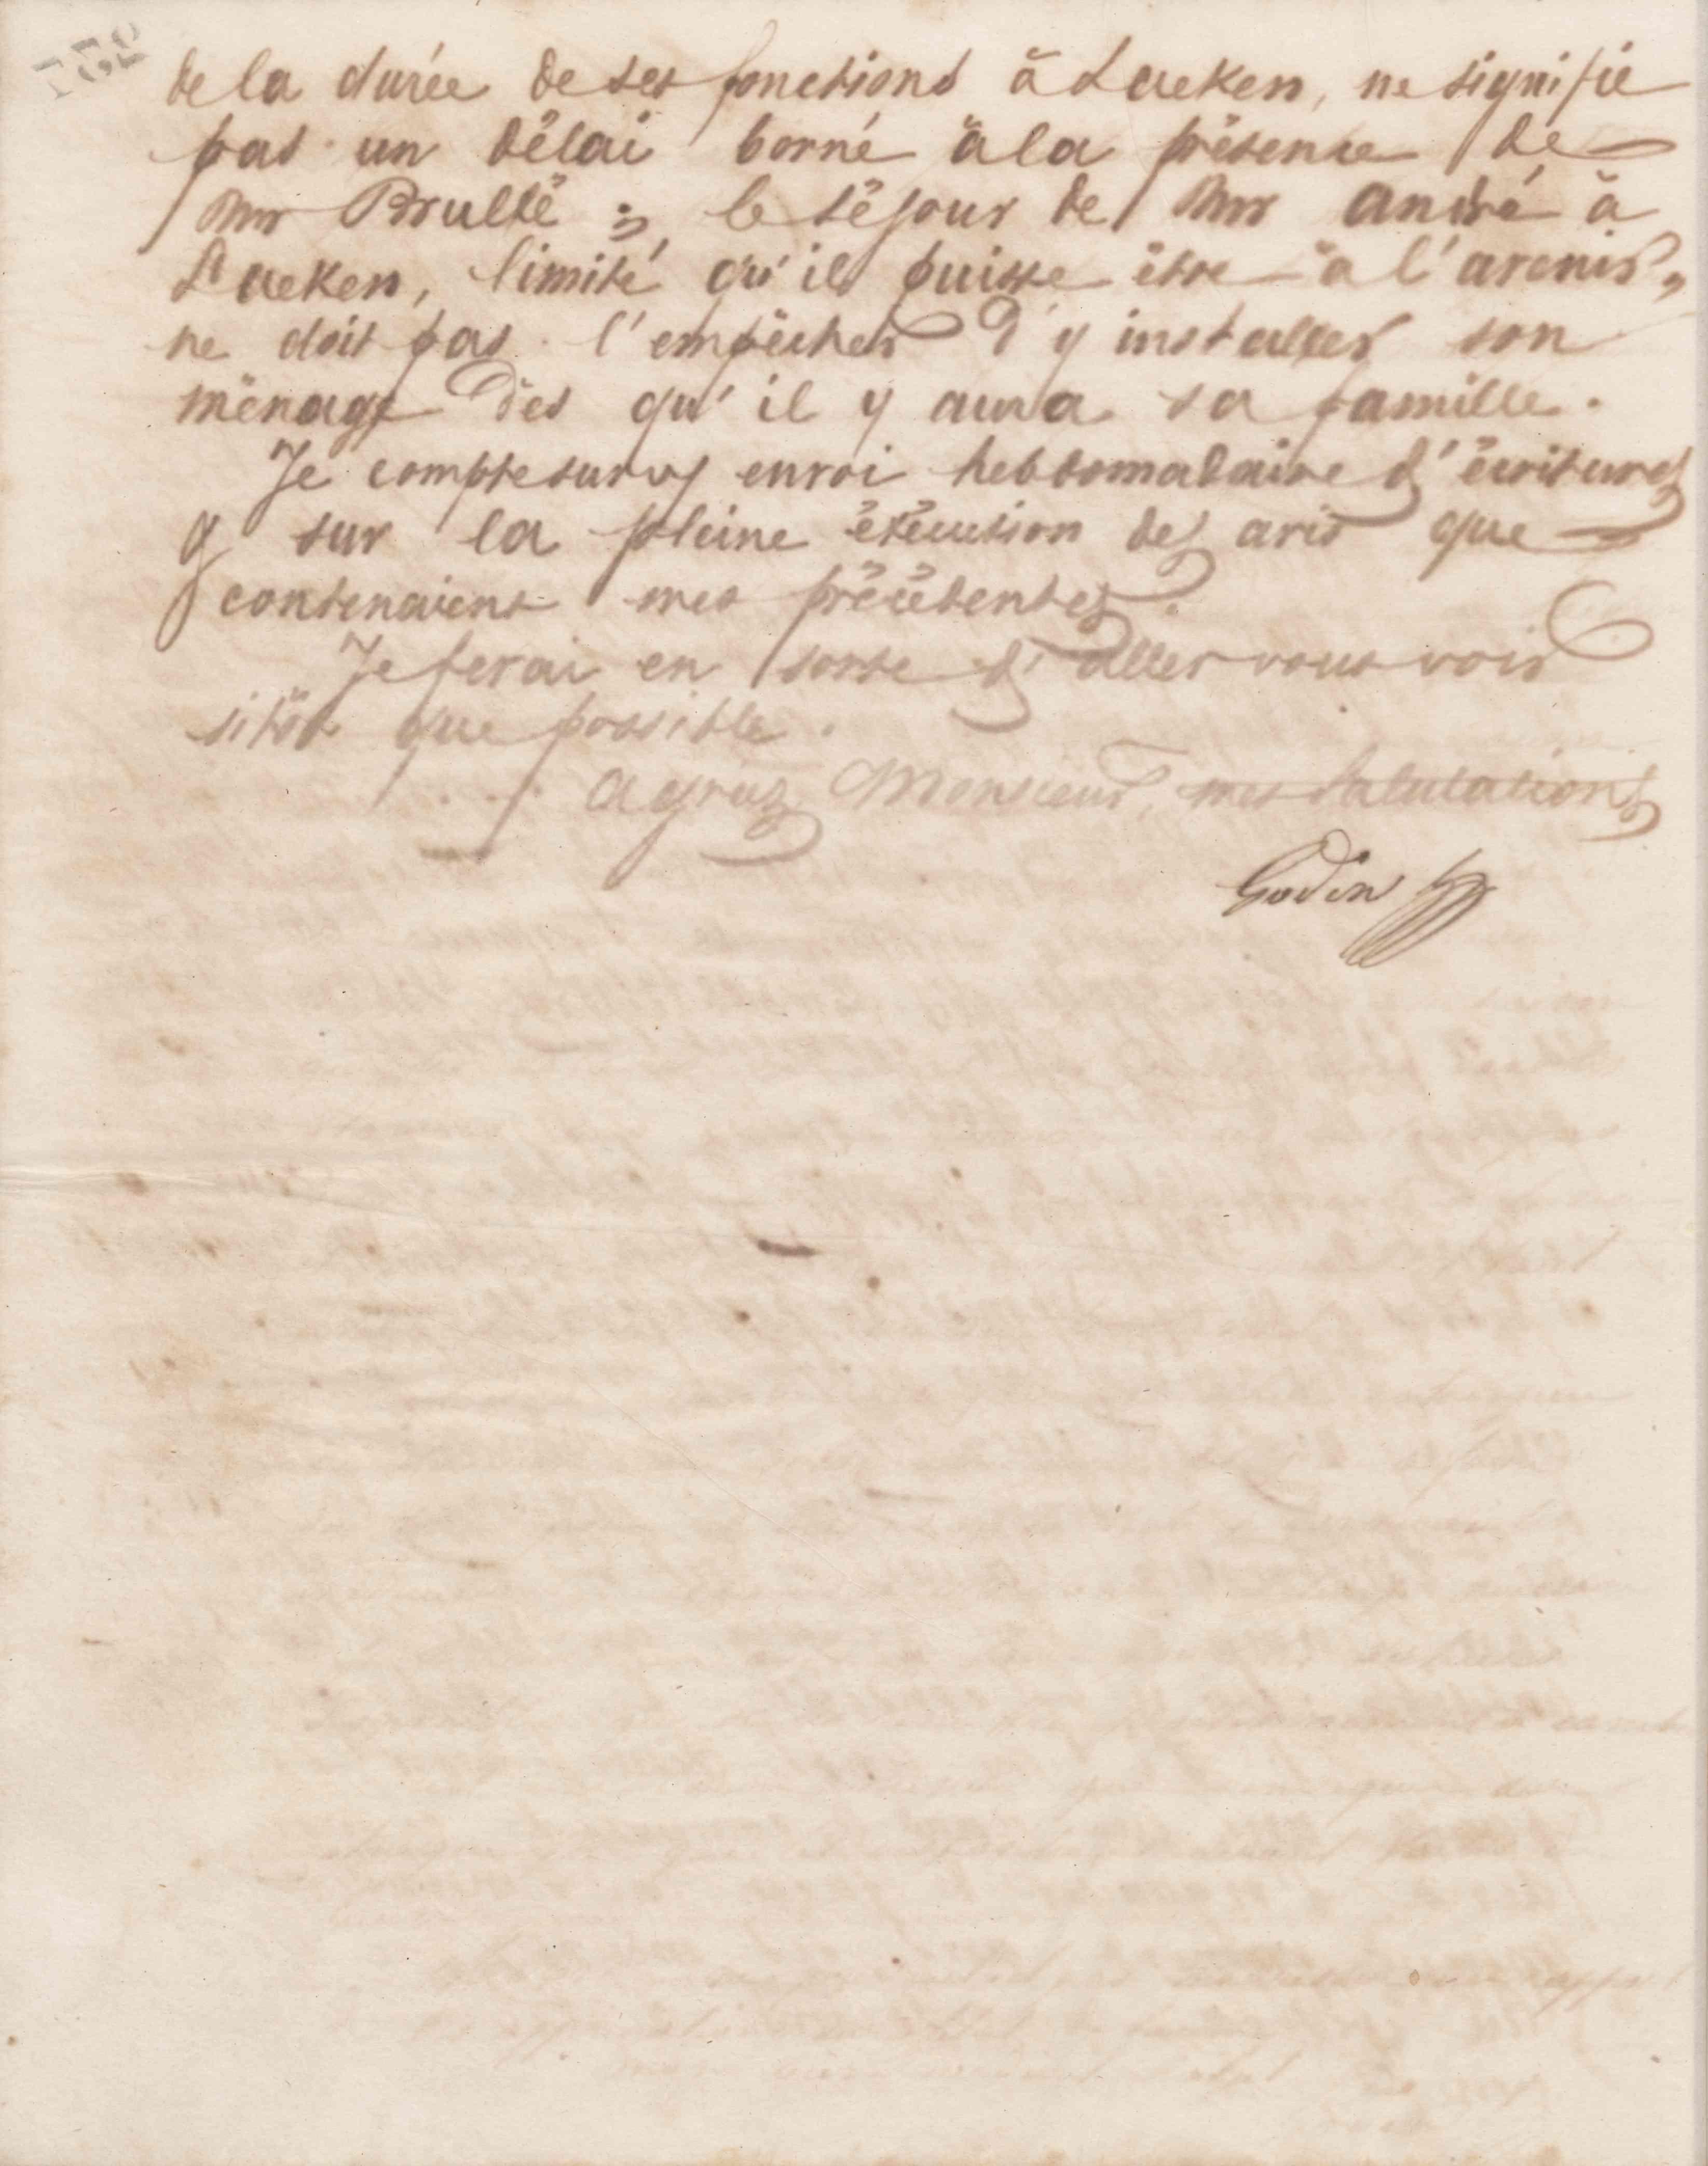 de la durée de ses fonctions à Laeken, ne signifie
pas un délai borné à la présence de
Mr Brullé ; le séjour de Mr André à
Laeken, limité qu'il puisse être à l'avenir,
ne doit pas l'empêcher d'y installer son
ménage dès qu'il y aura sa famille.
Je compte sur vos envoi hebdomadaire d'écritures
& sur la pleine exécution des avis que
contenaient mes précédentes.
Je ferai en sorte d'aller vous voir
sitôt que possible.
Agréez Monsieur, mes Salutations
Godin